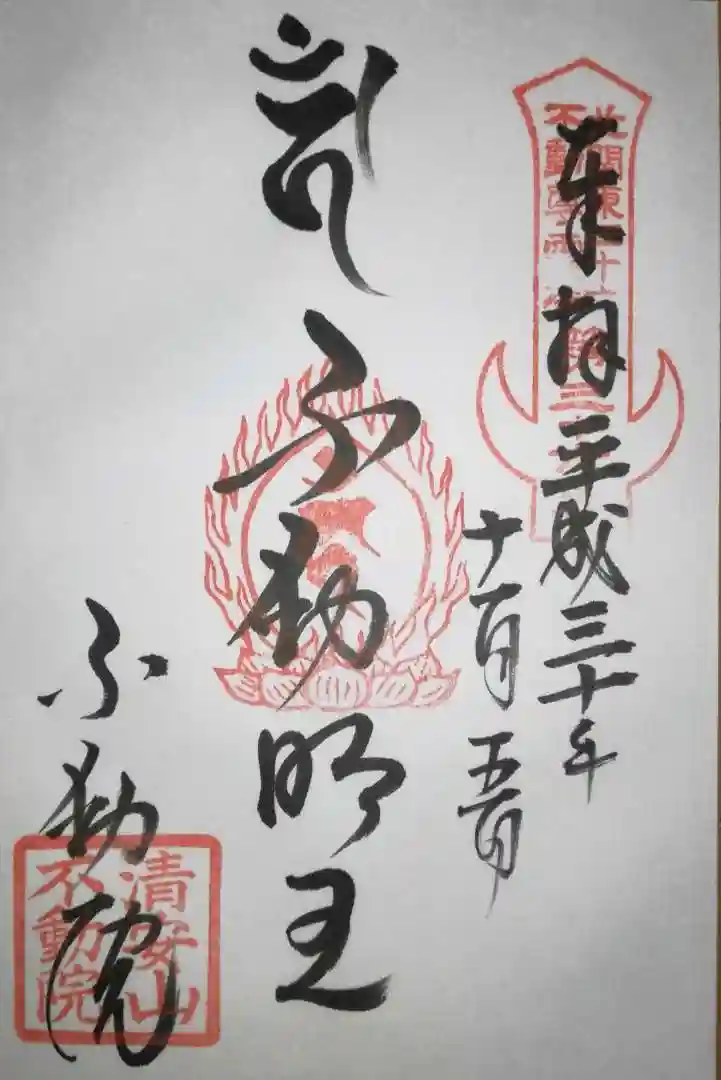 奉拝
平成三十年
十一月五日
不動明王
不動院
北関東三十六
不動尊霊
清安山
不動院